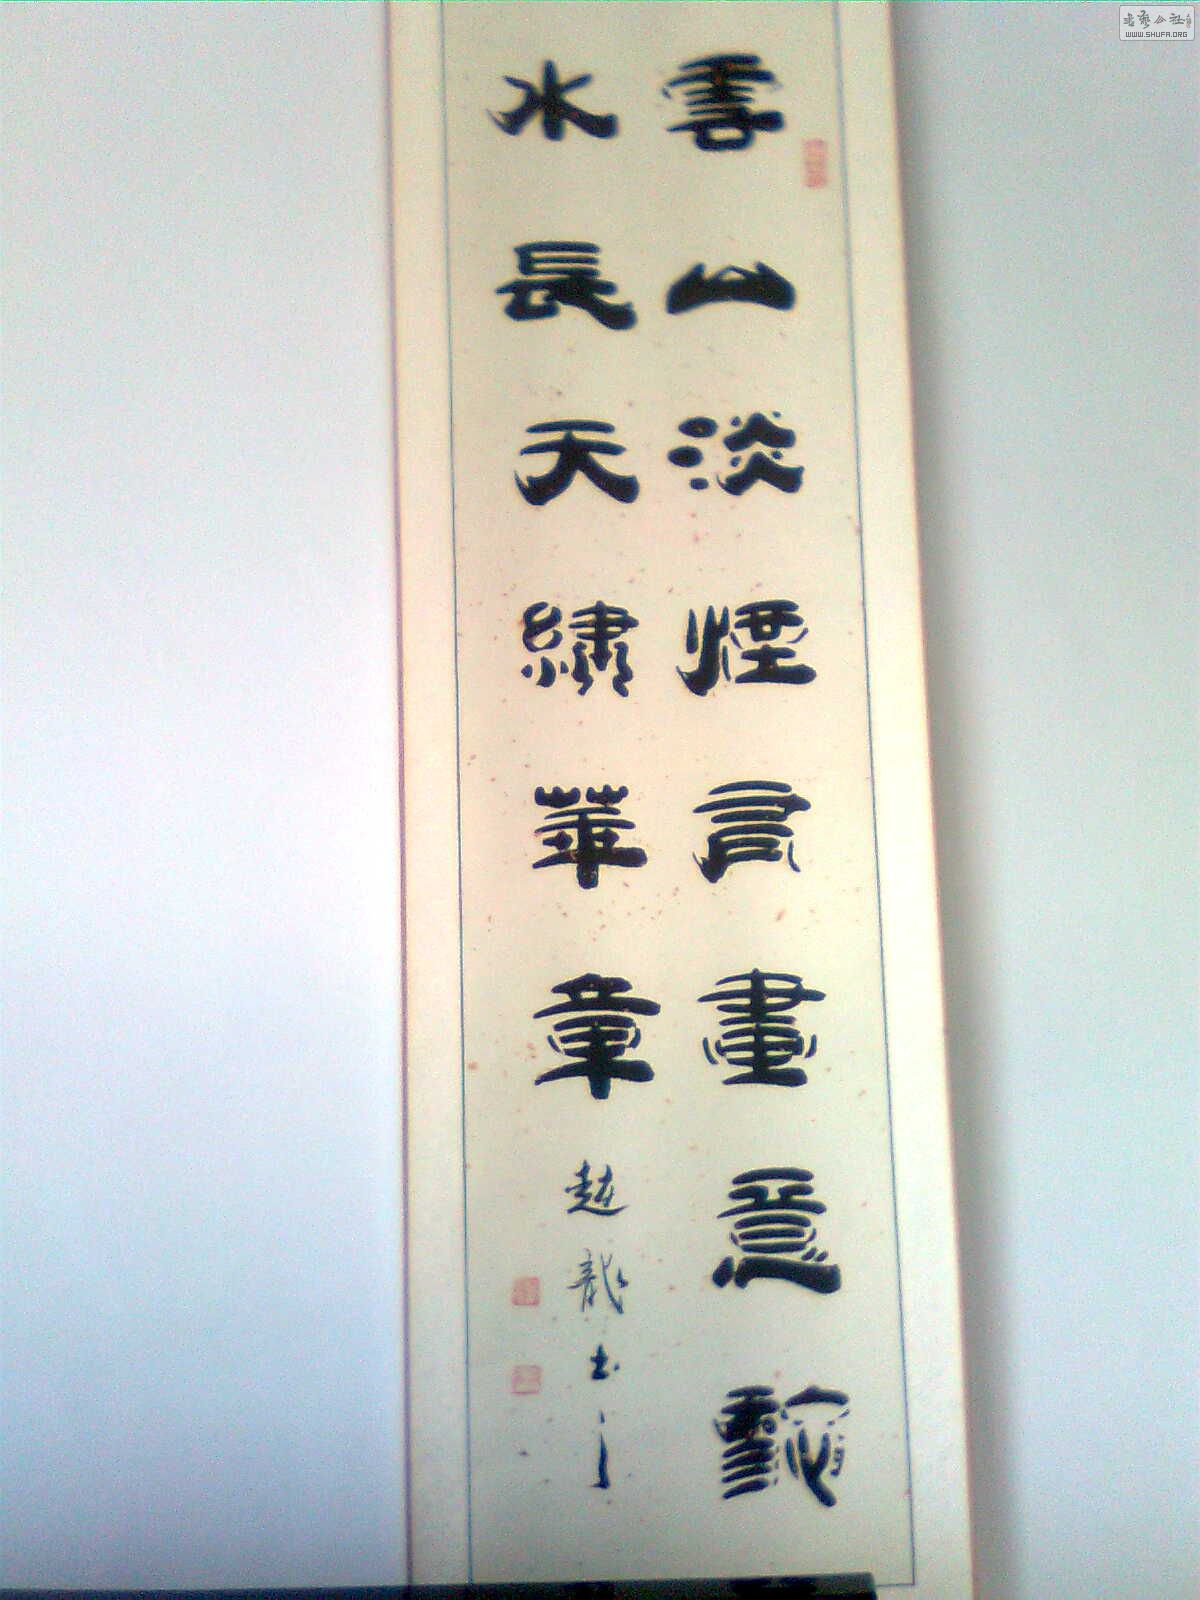 書藝公社
WWW.SHUFA.ORG
雲山淡煙有畫意龝
水長天繡華章
龍書